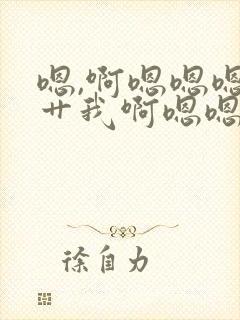 嗯,啊嗯嗯嗯
艹我啊嗯嗯
徐自力